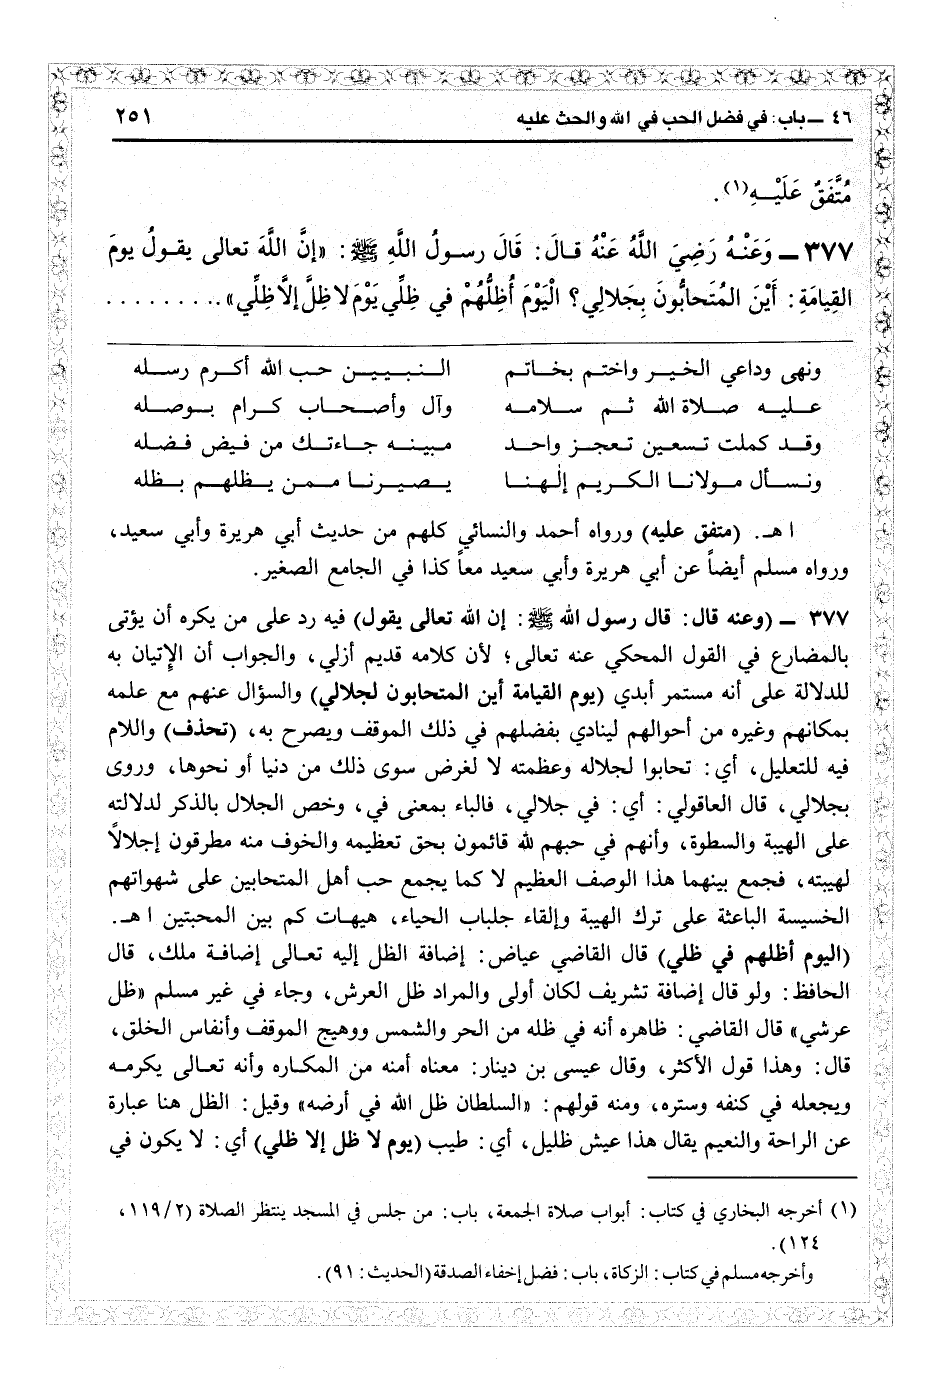 ٤٦ ـ باب: في فضل الحب في الله والحث عليه ٢٥١
مُتَّفَقٌ عَلَيْهِ(١).
٣٧٧ ـ وَعَنْهُ رَضِيَ اللَّهُ عَنْهُ قالَ: قَالَ رسولُ اللَّهِ ﷺ: «إنَّ اللَّهَ تعالى يقولُ يومَ
القِيامَةِ: أَيْنَ المُتَحابُّونَ بِجَلالي؟ الْيَوْمَ أُظِلُّهُمْ في ظِلِّي يَوْمَ لا ظِلَّ إلاَّ ظِلِّي».........
ونهى وداعي الخير واختم بخاتم النبيين حب الله أكرم رسله
عليه صلاة الله ثم سلامه وآل وأصحاب كرام بوصله
وقد كملت تسعين تعجز واحد مبينه جاءتك من فيض فضله
ونسأل مولانا الكريم إلهنا يصيرنا ممن يظلهم بظله
ا هـ. (متفق عليه) ورواه أحمد والنسائي كلهم من حديث أبي هريرة وأبي سعيد،
ورواه مسلم أيضاً عن أبي هريرة وأبي سعيد معاً كذا في الجامع الصغير.
٣٧٧ ـ (وعنه قال: قال رسول الله ﷺ: إن الله تعالى يقول) فيه رد على من يكره أن يؤتى
بالمضارع في القول المحكي عنه تعالى؛ لأن كلامه قديم أزلي، والجواب أن الإتيان به
للدلالة على أنه مستمر أبدي (يوم القيامة أين المتحابون لجلالي) والسؤال عنهم مع علمه
بمكانهم وغيره من أحوالهم لينادي بفضلهم في ذلك الموقف ويصرح به، (تحذف) واللام
فيه للتعليل، أي: تحابوا لجلاله وعظمته لا لغرض سوى ذلك من دنيا أو نحوها، وروى
بجلالي، قال العاقولي: أي: في جلالي، فالباء بمعنى في، وخص الجلال بالذكر لدلالته
على الهيبة والسطوة، وأنهم في حبهم لله قائمون بحق تعظيمه والخوف منه مطرقون إجلالاً
لهيبته، فجمع بينهما هذا الوصف العظيم لا كما يجمع حب أهل المتحابين على شهواتهم
الخسيسة الباعثة على ترك الهيبة وإلقاء جلباب الحياء، هيهات كم بين المحبتين ا هـ.
(اليوم أظلهم في ظلي) قال القاضي عياض: إضافة الظل إليه تعالى إضافة ملك، قال
الحافظ: ولو قال إضافة تشريف لكان أولى والمراد ظل العرش، وجاء في غير مسلم «ظل
عرشي» قال القاضي: ظاهره أنه في ظله من الحر والشمس ووهيج الموقف وأنفاس الخلق،
قال: وهذا قول الأكثر، وقال عيسى بن دينار: معناه أمنه من المكاره وأنه تعالى يكرمه
ويجعله في كنفه وستره، ومنه قولهم: «السلطان ظل الله في أرضه» وقيل: الظل هنا عبارة
عن الراحة والنعيم يقال هذا عيش ظليل، أي: طيب (يوم لا ظل إلا ظلي) أي: لا يكون في
(١) أخرجه البخاري في كتاب: أبواب صلاة الجمعة، باب: من جلس في المسجد ينتظر الصلاة (١١٩/٢،
١٢٤).
وأخرجه مسلم في كتاب: الزكاة، باب: فضل إخفاء الصدقة (الحديث: ٩١).